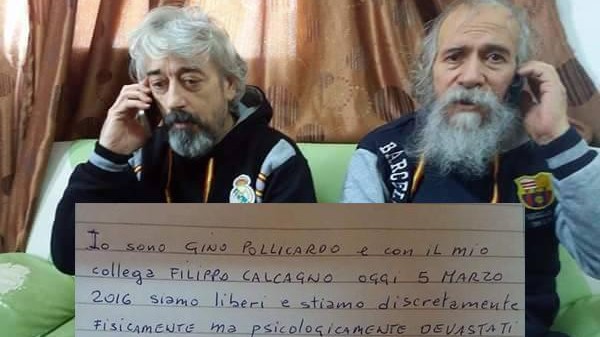 BARCEL
FCB
Io sono GINO POLLICARDO e con il mio
collega FILIPPO CALCAGNO OGGI 5 MARZO
2016 siamo liberi e stiamo discretamente
FISICAMENTE ma psicologicamente DEVASTATI